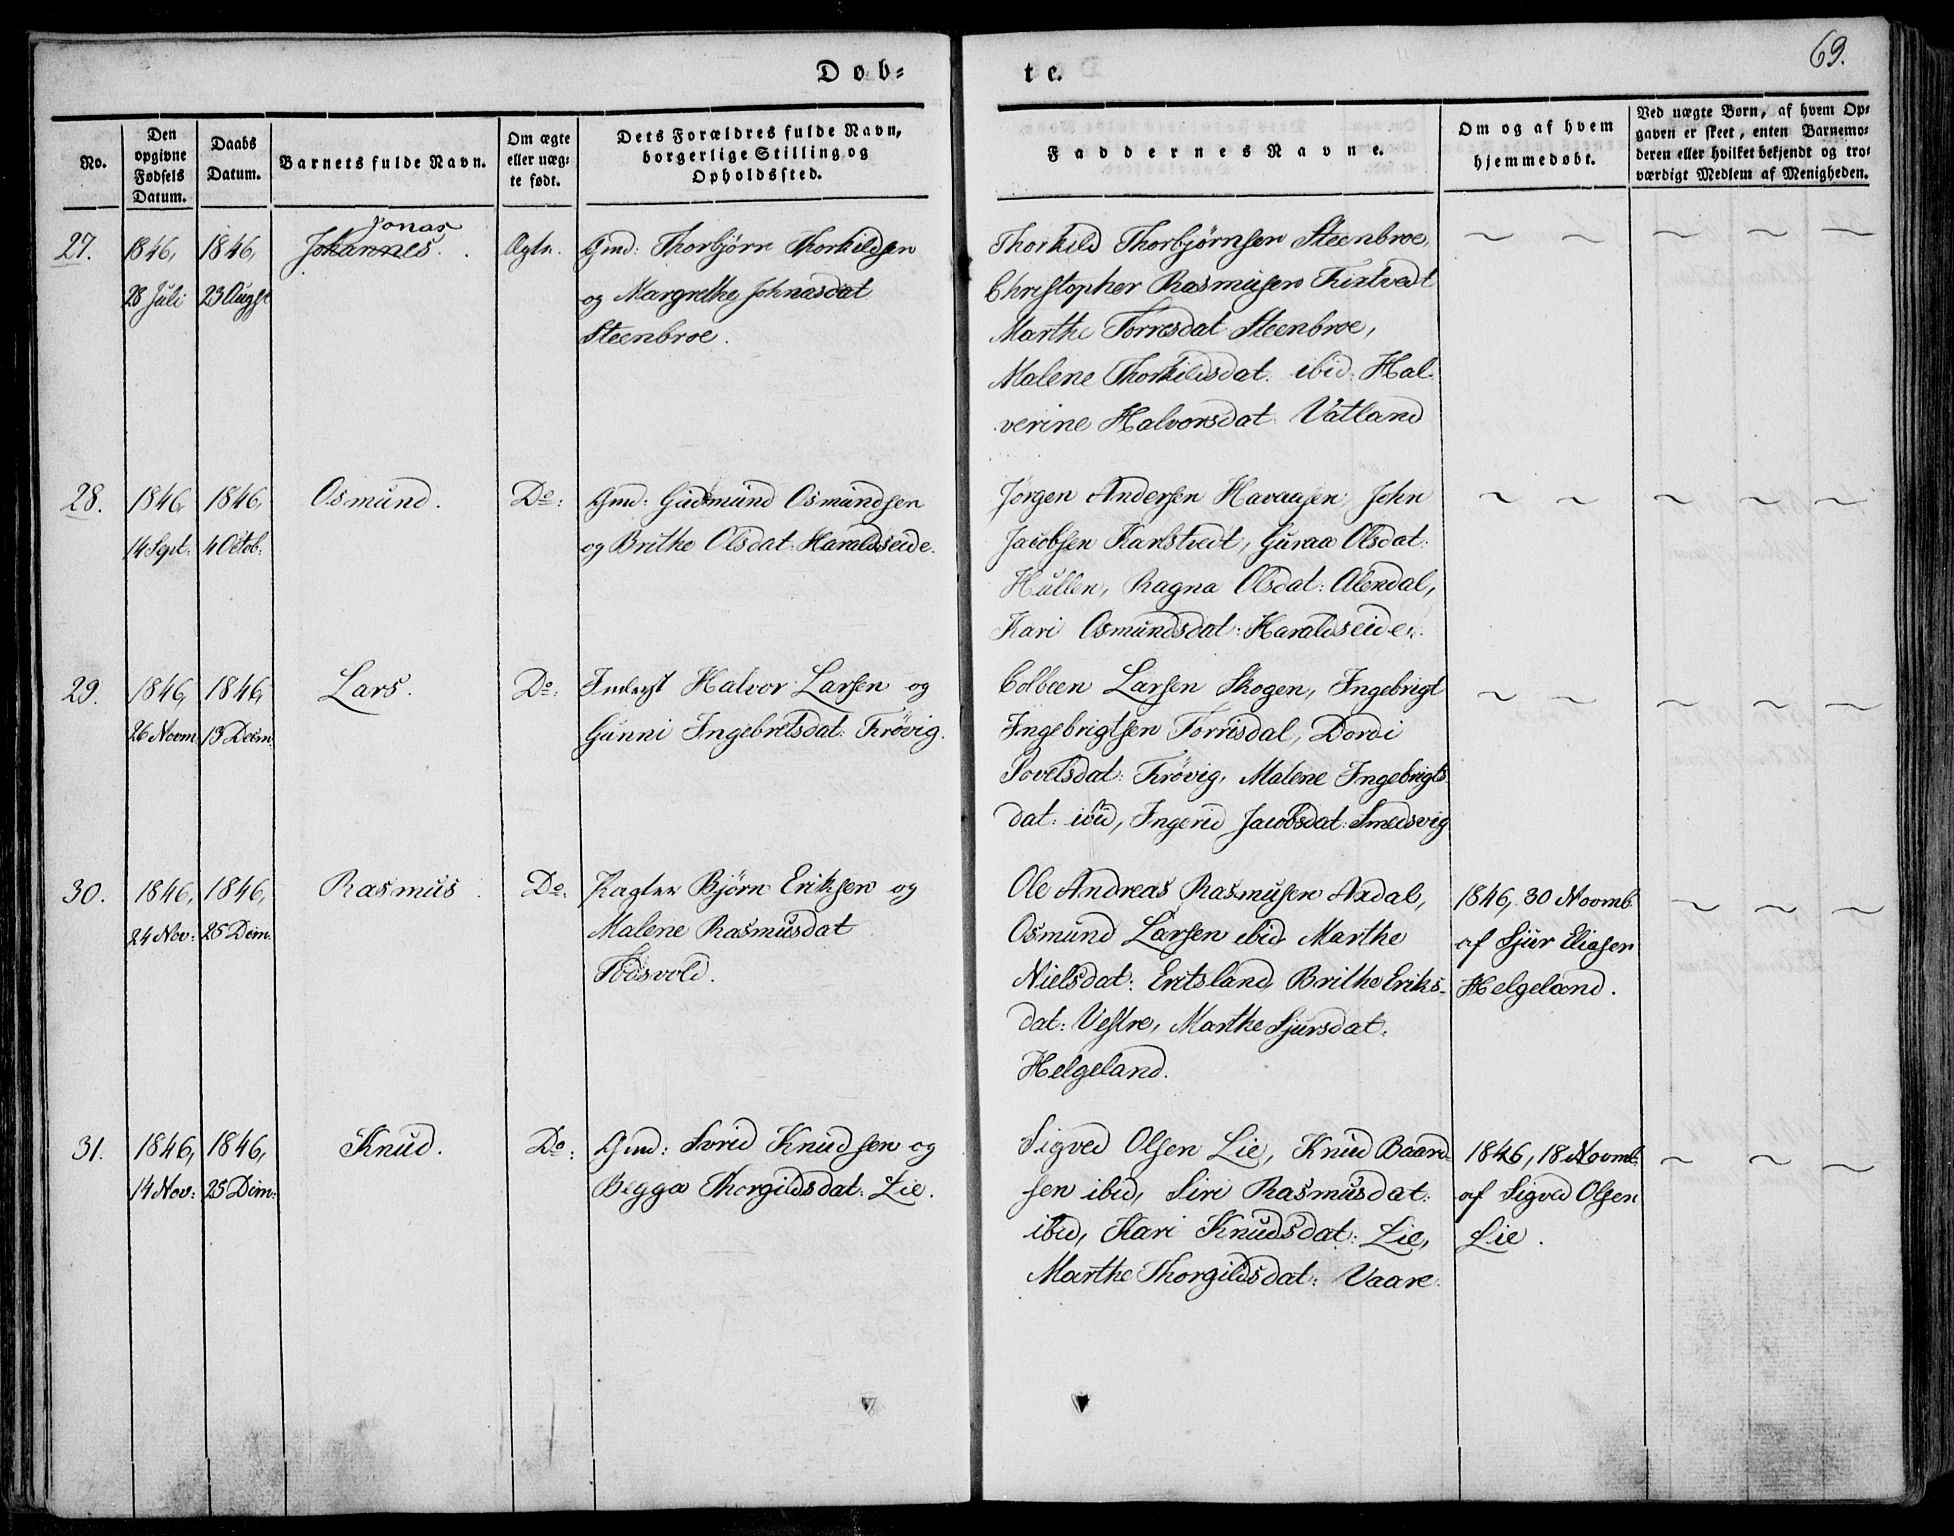 69.
Døb-
te.
No.
Den opgivne Fødsels Datum.
Daabs Datum.
Barnets fulde Navn.
Om ægte eller uæg- te født.
Dets Forældres fulde Navn, borgerlige Stilling og Opholdssted.
Faddernes Navne.
Om og af hvem hjemmedøbt.
Ved uægte Børn, af hvem Op- gaven er skeet, enten Barnemo- deren eller hvilket bekjendt og tro- værdigt Medlem af Menigheden.
27.
1846,
28 Juli
1846,
23 Augst
Jonas
Johannes.
Ægte.
Gmd: Thorbjørn Thorkildsen
og Margrethe Johnasdat
Steenbroe.
Thorkild Thorbjørnsen Steenbroe,
Christopher Rasmusen Tixtvedt
Marthe Torresdat Steenbroe,
Malene Thorkildsdat. ibid: Hal-
verine Halvorsdat: Vatland
28.
1846,
14 Sept:
1846,
4 Octob:
Osmund.
Do:
Gmd: Gudmund Osmundsen
og Brithe Olsdat: Haraldseide.
Jørgen Andersen Havaasen, John
Jacobsen Karstvedt, Guraa Olsdat:
Hullen, Ragna Olsdat: Alendal,
Kari Osmundsdat: Haraldseide.
29.
1846,
26 Novm
1846,
13 Decm
Lars.
Do:
Inderst Halvor Larsen og
Gunni Ingebretsdat: Krøvig.
Colbeen Larsen Skogen, Ingebrigt
Ingebrigtsen Torrisdal, Dordi
Povelsdat: Krøvig, Malene Ingebrigts-
dat: ibid, Ingerid Jacobsdat: Smedsvig
30.
1846,
24 Nov:
1846,
25 Decm.
Rasmus.
Do.
Bjørn Eriksen og
Malene Rasmusdat
Fosvold.
Ole Andreas Rasmusen Axdal,
Osmund Larsen ibid, Marthe
Nielsdat: Eritsland, Brithe Eriks-
dat: Vestre, Marthe Sjursdat:
Helgeland.
1846, 30 Novmb
af Sjur Eliasen
Helgeland.
31.
1846,
14 Nov:
1846,
25 Decm:
Knud.
Do:
Gmd: Torid Knudsen og
Begga Thorgildsdat: Lie.
Sigved Olsen Lie, Knud Baard-
sen ibid, Siri Rasmusdat:
ibid, Kari Knudsdat: Lie,
Marthe Thorgildsdat: Vaare.
1846, 18 Novmb
af Sigved Olsen
Lie.